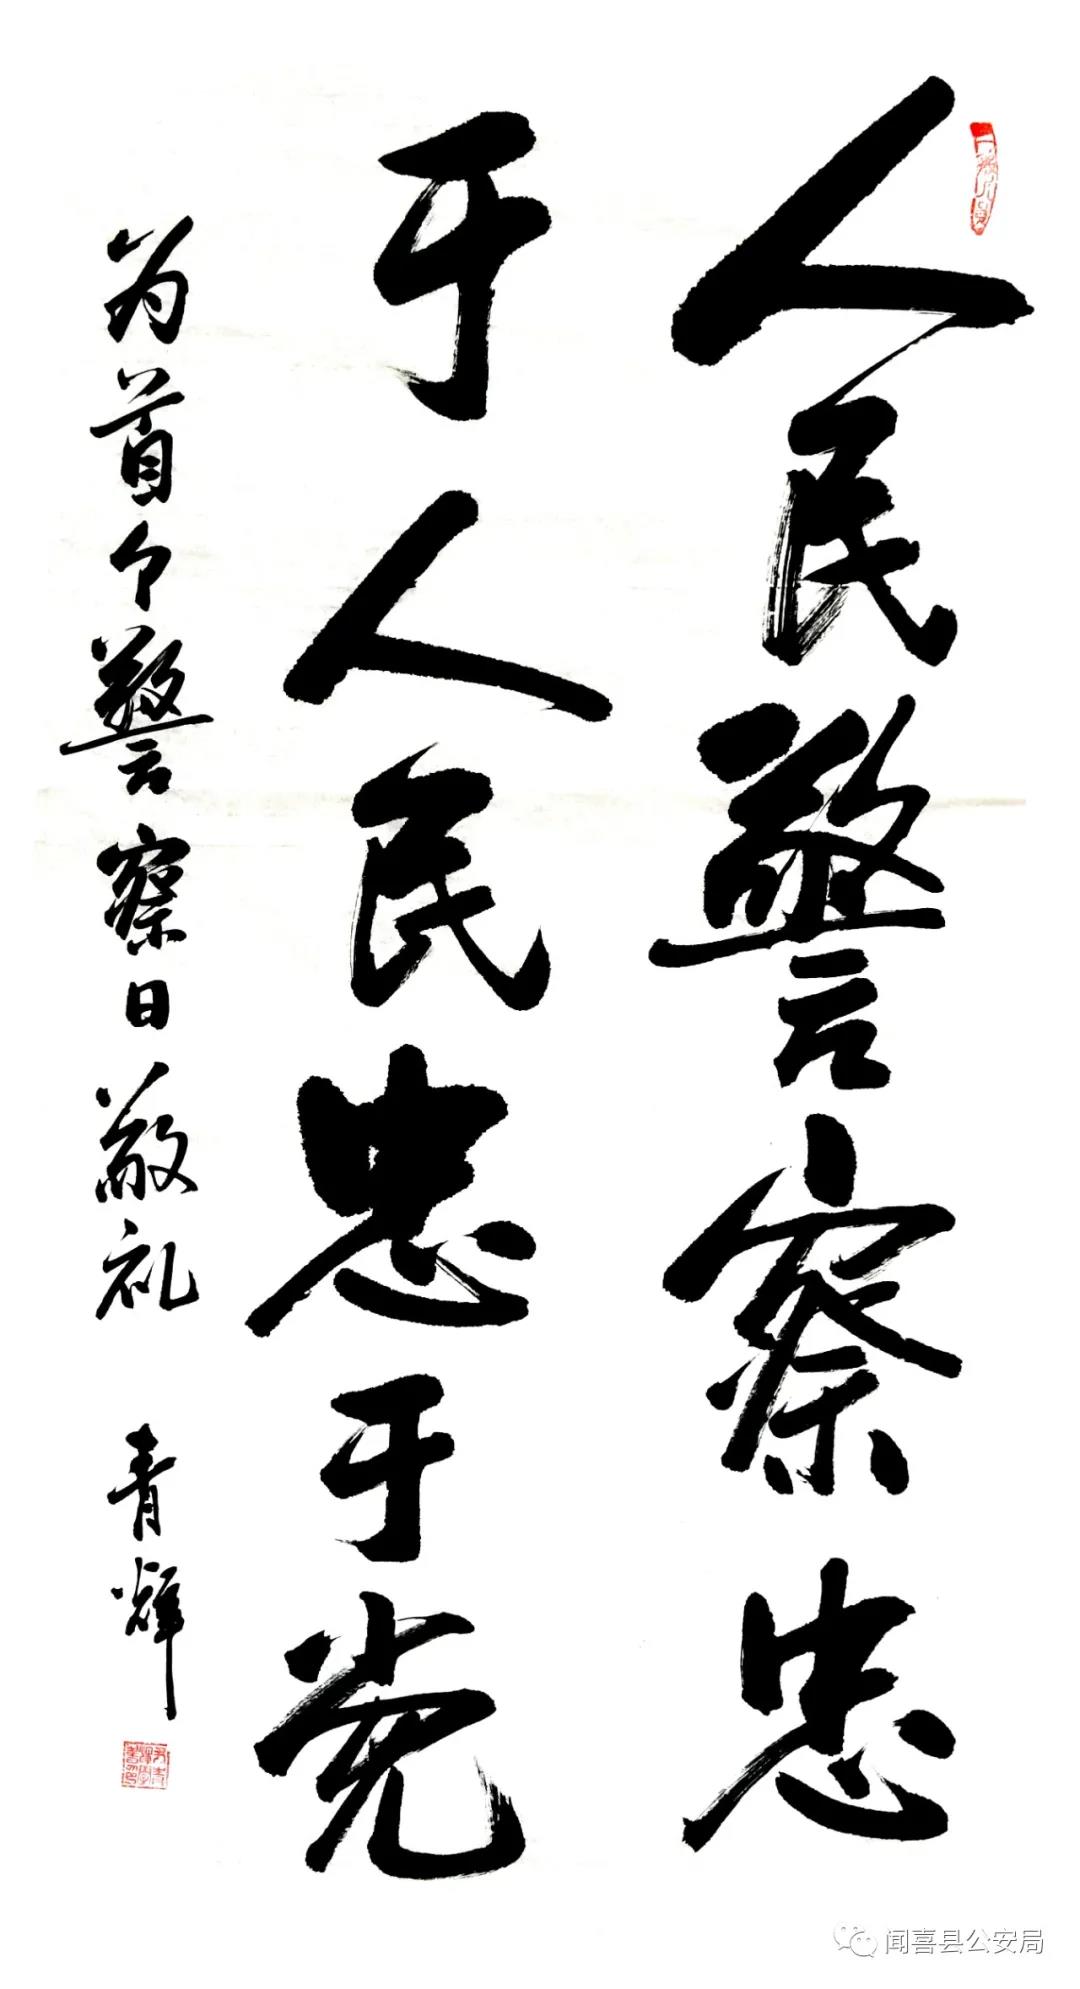 人民警察忠
于人民忠于党
为首个警察日敬礼 青辉
闻喜县公安局